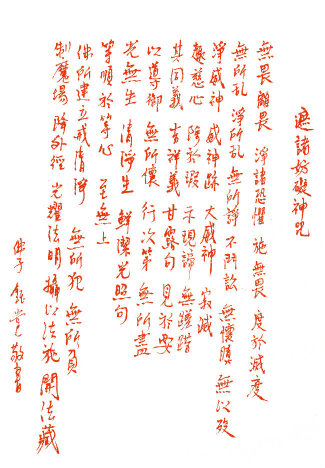 避諸妨硋神咒
無畏 離畏 淨諸恐懼 施無畏 度於滅度
無所亂 淨所亂 無所諍 不鬥訟 無以
淨威神 威神跡 大威神 寂滅
趣慈心 除於瑕 示現諦
其同義 吉祥義 甘露句 見於要
以導御 無所懷 行次第 無所盡
光無生 清淨生 鮮潔光照句
等順於等心 至無上
佛所建立戒清淨 無所犯 無所負
制魔場 降外徑 光耀法明 攝以法施 開法藏
佛子 敬書